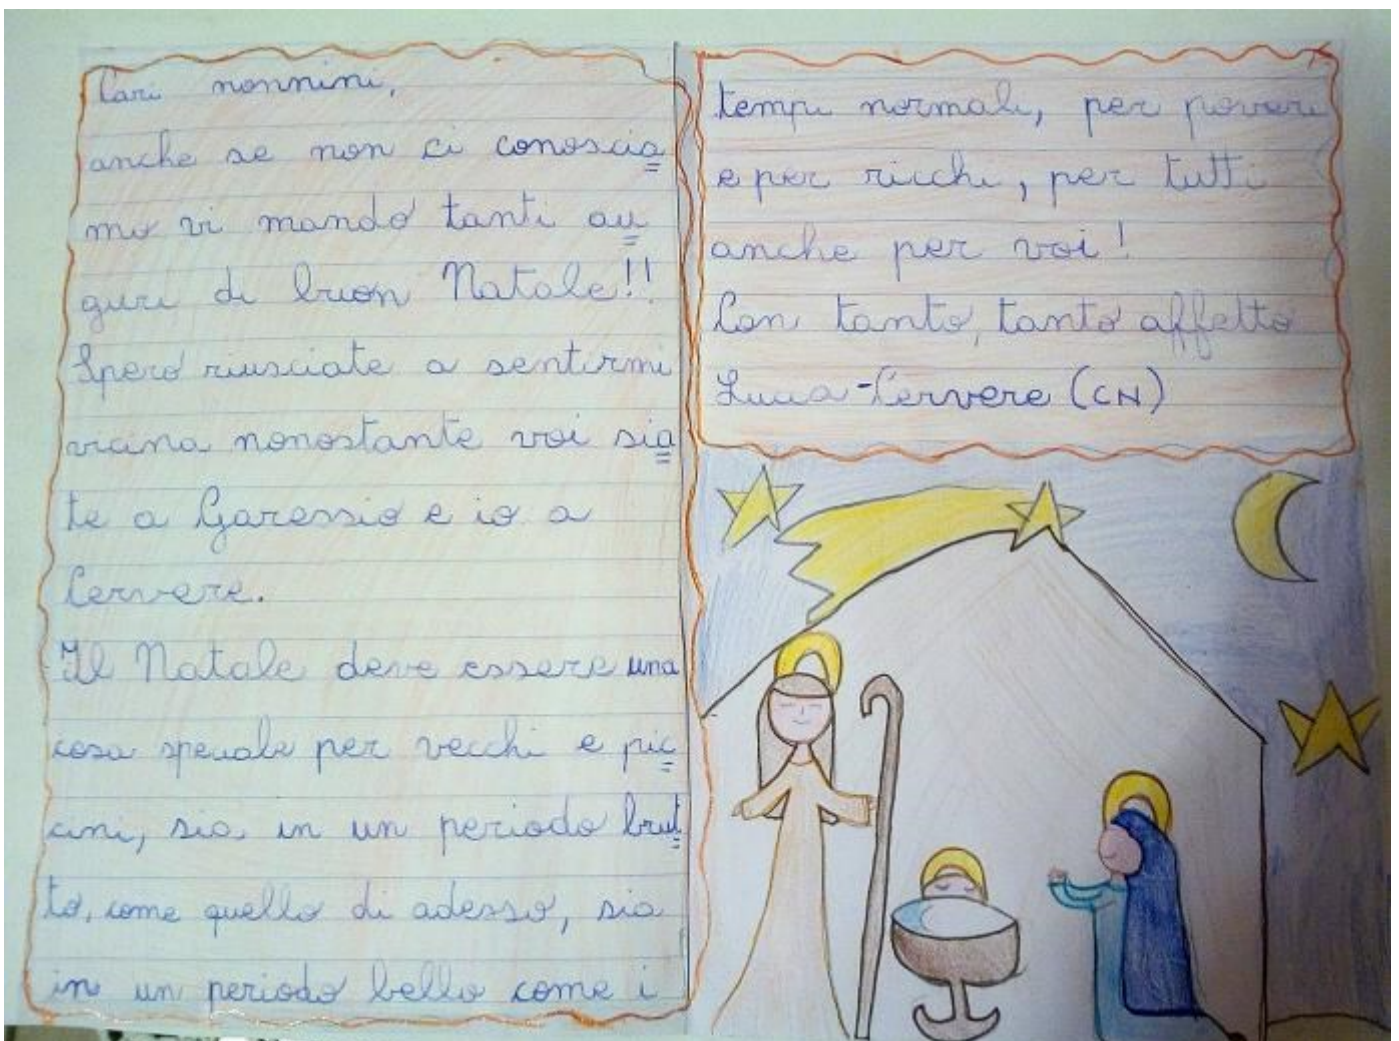 Cari nonnini,
anche se non ci conoscia
mo vi mando tanti au
guri di buon Natale!!
Spero riusciate a sentirmi
vicina nonostante voi sia
te a Garessio e io a
Cervere.
Il Natale deve essere una
cosa speciale per vecchi e pic
cini, sia in un periodo brut
to, come quello di adesso, sia
in un periodo bello come i
tempi normali, per poveri
e per ricchi, per tutti
anche per voi!
Con tanto, tanto affetto
Lucia-Cervere (CN)